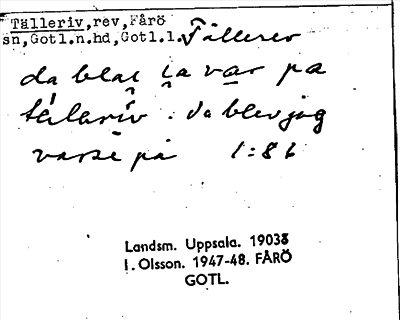 Tälleriv,rev,Fårö
sn,Gotl.n.hd,Gotl.l. Tällerev
da blai ia var pa
tälariv. da blev jag
varse på 1:86
Landsm. Uppsala. 19038
I. Olsson. 1947-48. FÅRÖ
GOTL.